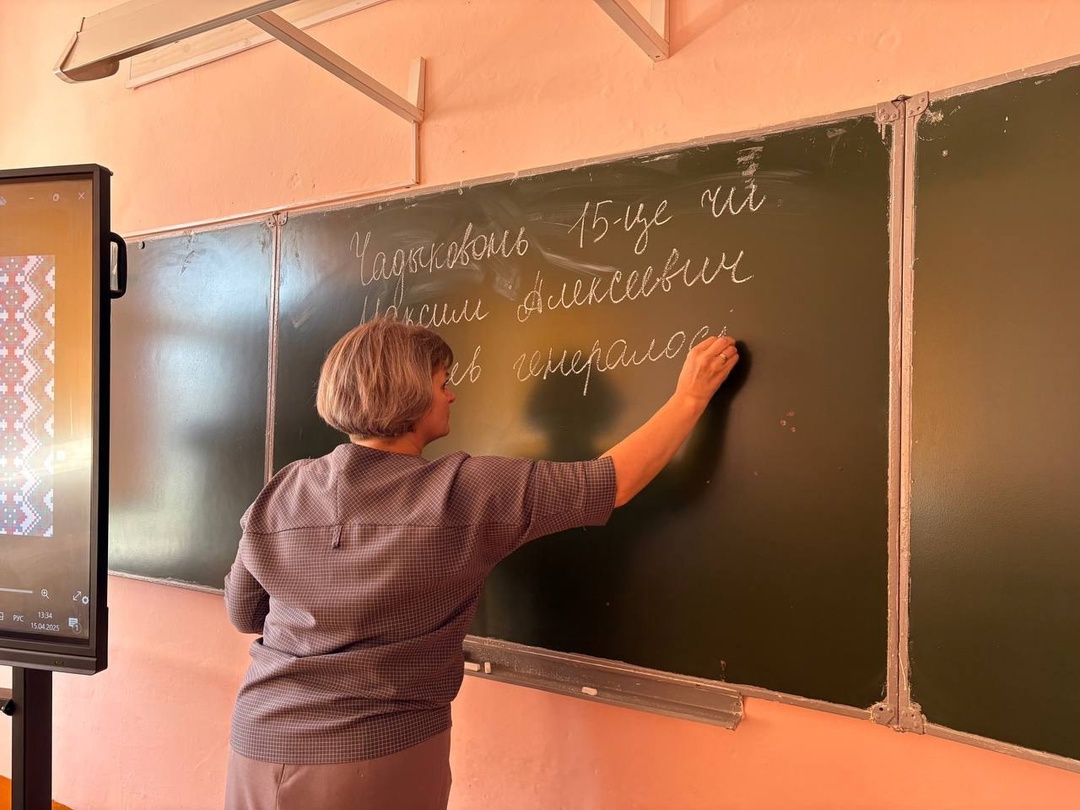 Чадыковонь 15-це чи
Максим Алексеевич
ев генералос
РУС 13:34
15.04.2025